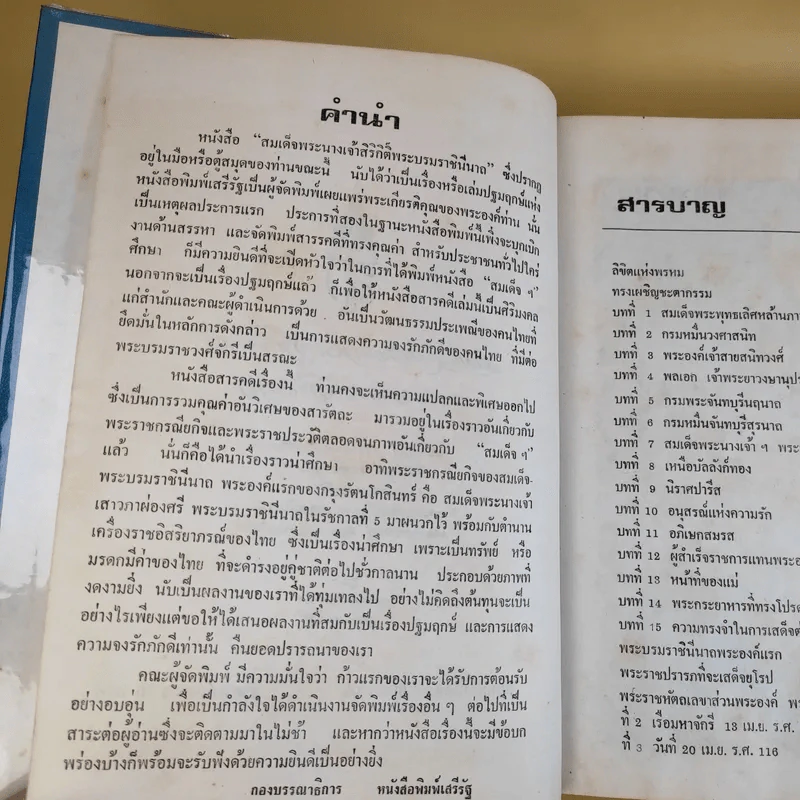 คำนำ
หนังสือ "สมเด็จพระนางเจ้าสิริกิติ์พระบรมราชินีนาถ" ซึ่งปรากฏ
อยู่ในมือหรือตู้สมุดของท่านขณะนี้ นับได้ว่าเป็นเรื่องหรือเล่มปฐมฤกษ์แห่ง
หนังสือพิมพ์เสรีรัฐเป็นผู้จัดพิมพ์เผยแพร่พระเกียรติคุณของพระองค์ท่าน นั้น
เป็นเหตุผลประการแรก ประการที่สองในฐานะหนังสือพิมพ์นี้เพิ่งจะบุกเบิก
งานด้านสรรหา และจัดพิมพ์สารรคดีที่ทรงคุณค่า สำหรับประชาชนทั่วไปใคร่
ศึกษา ก็มีความยินดีที่จะเปิดหัวใจว่าในการที่ได้พิมพ์หนังสือ "สมเด็จ ฯ"
นอกจากจะเป็นเรื่องปฐมฤกษ์แล้ว ก็เพื่อให้หนังสือสารคดีเล่มนี้เป็นศิริมงคล
แก่สำนักและคณะผู้ดำเนินการด้วย อันเป็นวัฒนธรรมประเพณีของคนไทยที่
ยึดมั่นในหลักการดังกล่าว เป็นการแสดงความจงรักภักดีของคนไทย ที่มีต่อ
พระบรมราชวงศ์จักรีเป็นสรณะ
หนังสือสารคดีเรื่องนี้ ท่านคงจะเห็นความแปลกและพิเศษออกไป
ซึ่งเป็นการรวมคุณค่าอันวิเศษของสารัตถะ มารวมอยู่ในเรื่องราวอันเกี่ยวกับ
พระราชกรณียกิจและพระราชประวัติตลอดจนภาพอันเกี่ยวกับ "สมเด็จ ฯ"
แล้ว นั่นก็คือได้นำเรื่องราวน่าศึกษา อาทิพระราชกรณียกิจของสมเด็จ-
พระบรมราชินีนาถ พระองค์แรกของกรุงรัตนโกสินทร์ คือ สมเด็จพระนางเจ้า
เสาวภาผ่องศรี พระบรมราชินีนาถในรัชกาลที่ 5 มาผนวกไว้ พร้อมกับตำนาน
เครื่องราชอิสริยาภรณ์ของไทย ซึ่งเป็นเรื่องน่าศึกษา เพราะเป็นทรัพย์ หรือ
มรดกมีค่าของไทย ที่จะดำรงอยู่คู่ชาติต่อไปชั่วกาลนาน ประกอบด้วยภาพที่
งดงามยิ่ง นับเป็นผลงานของเราที่ได้ทุ่มเทลงไป อย่างไม่คิดถึงต้นทุนจะเป็น
อย่างไรเพียงแต่ขอให้ได้เสนอผลงานที่สมกับเป็นเรื่องปฐมฤกษ์ และการแสดง
ความจงรักภักดีเท่านั้น คืนยอดปรารถนาของเรา
คณะผู้จัดพิมพ์ มีความมั่นใจว่า ก้าวแรกของเราจะได้รับการต้อนรับ
อย่างอบอุ่น เพื่อเป็นกำลังใจได้ดำเนินงานจัดพิมพ์เรื่องอื่น ๆ ต่อไปที่เป็น
สาระต่อผู้อ่านซึ่งจะติดตามมาในไม่ช้า และหากว่าหนังสือเรื่องนี้จะมีข้อบก
พร่องบ้างก็พร้อมจะรับฟังด้วยความยินดีเป็นอย่างยิ่ง
กองบรรณาธิการ หนังสือพิมพ์เสรีรัฐ
สารบาญ
ลิขิตแห่งพรหม
ทรงเผชิญชะตากรรม
บทที่ 1 สมเด็จพระพุทธเลิศหล้านภา
บทที่ 2 กรมหมื่นวงศาสนิท
บทที่ 3 พระองค์เจ้าสายสนิทวงศ์
บทที่ 4 พลเอก เจ้าพระยาวงษานุป
บทที่ 5 กรมพระจันทบุรีนฤนาถ
บทที่ 6 กรมหมื่นจันทบุรีสุรนาถ
บทที่ 7 สมเด็จพระนางเจ้า ฯ พระ
บทที่ 8 เหนือบัลลังก์ทอง
บทที่ 9 นิราศปารีส
บทที่ 10 อนุสรณ์แห่งความรัก
บทที่ 11 อภิเษกสมรส
บทที่ 12 ผู้สำเร็จราชการแทนพระอ
บทที่ 13 หน้าที่ของแม่
บทที่ 14 พระกระยาหารที่ทรงโปรด
บทที่ 15 ความทรงจำในการเสด็จต่
พระบรมราชินีนาถพระองค์แรก
พระราชปรารภที่จะเสด็จยุโรป
พระราชหัตถเลขาส่วนพระองค์ พร
ที่ 2 เรือมหาจักรี 13 เม.ย. ร.ศ.
ที่ 3 วันที่ 20 เม.ย. ร.ศ. 116